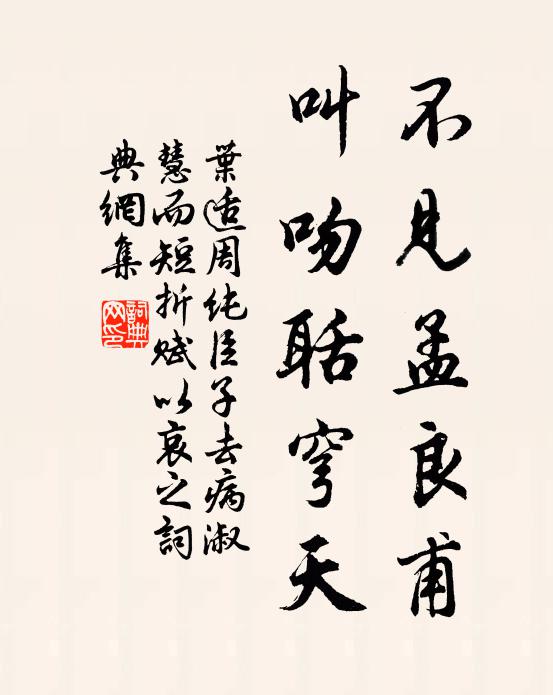 不見孟良甫
叫吻聒穹天
葉适周純臣子去病淑
慧而短折賦以哀之詞
典網集
詞典
网印